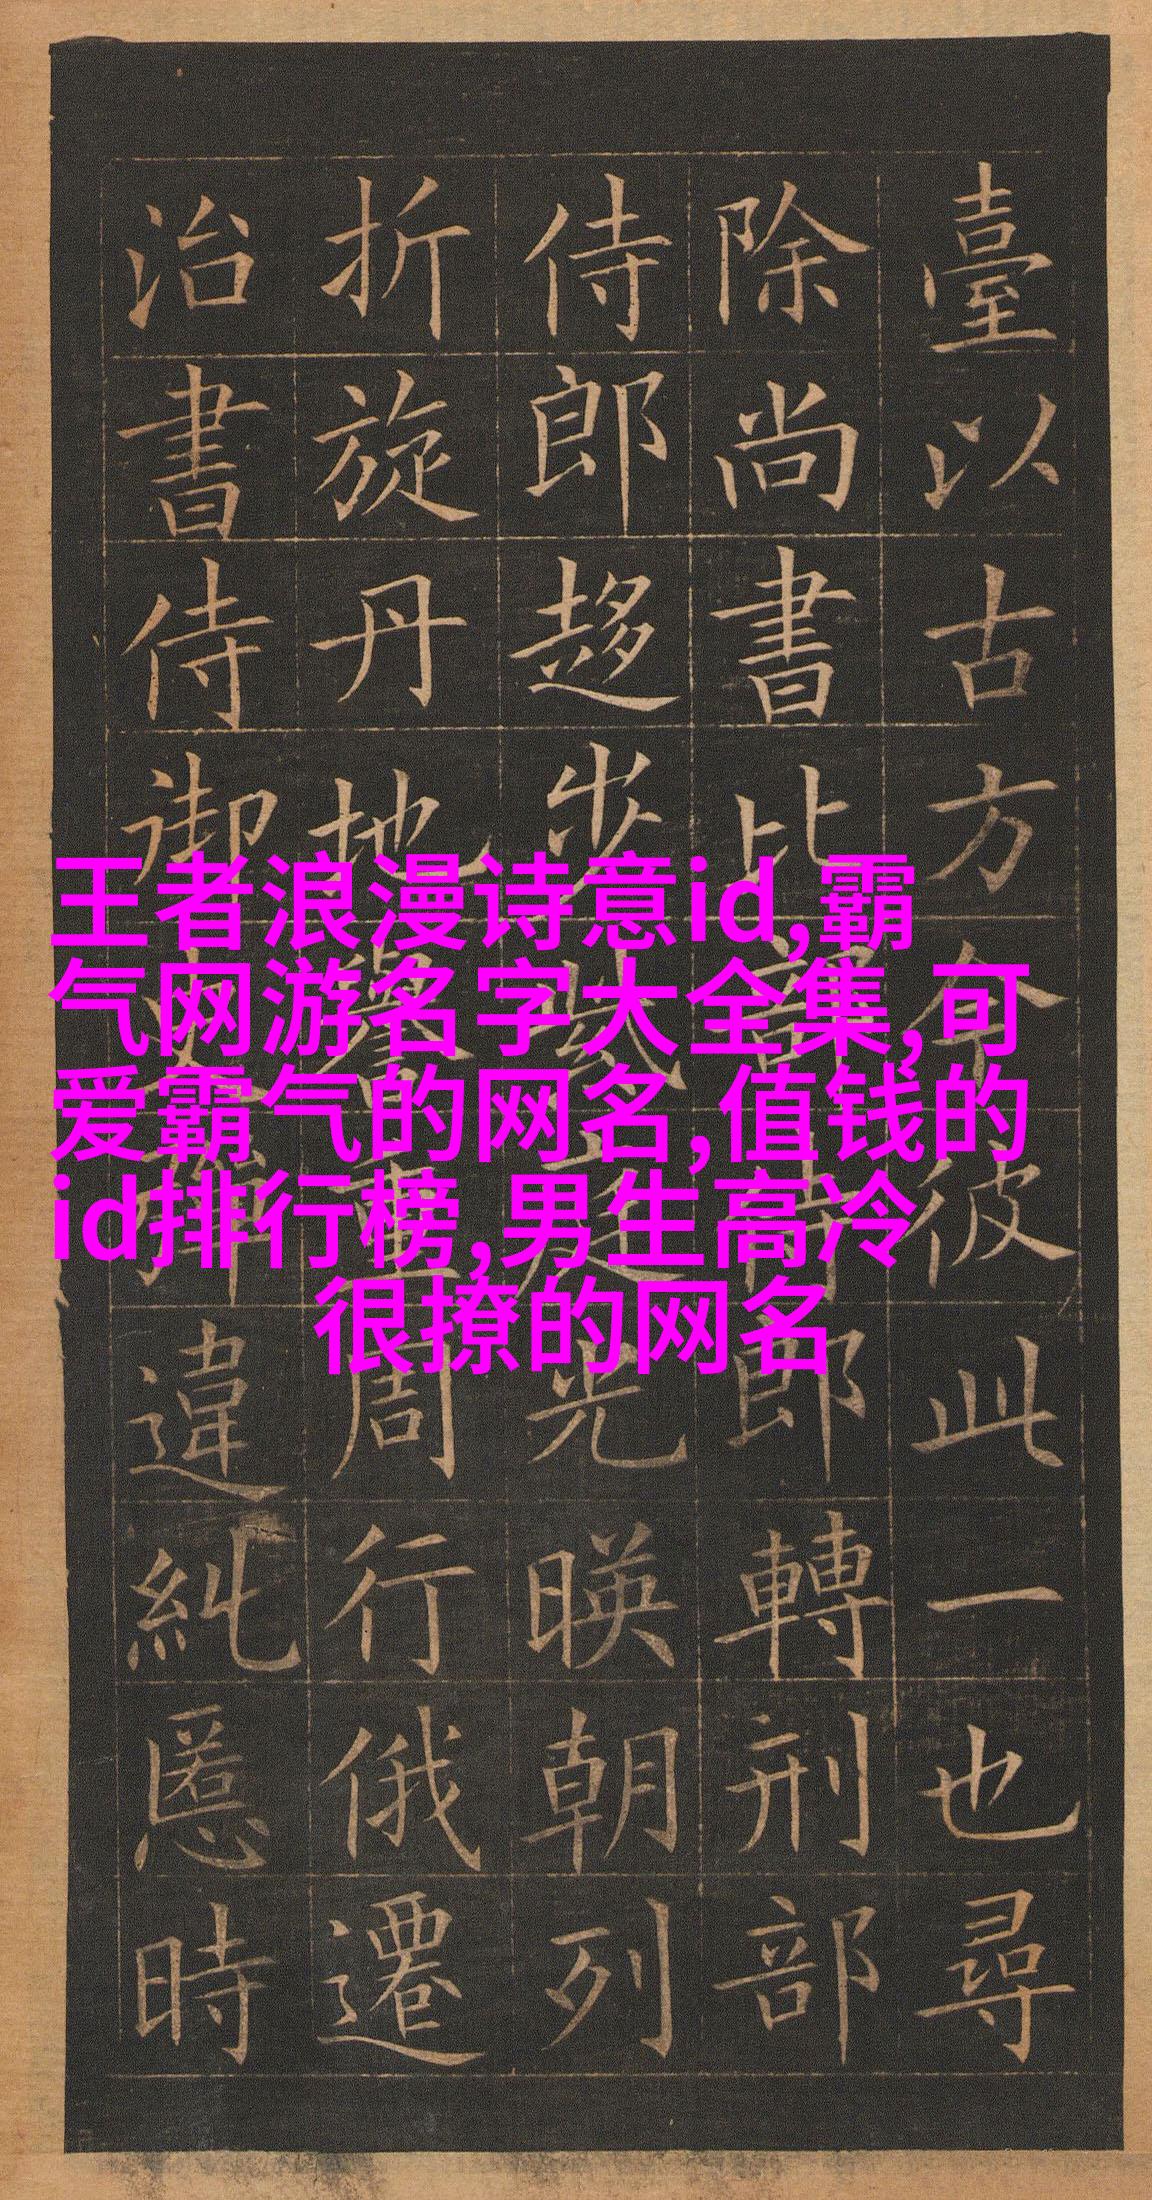 王者浪漫诗意id,霸
气网游名字大全集,可
爱霸气的网名,值钱的
id排行榜,男生高冷
很撩的网名
臺以古方今彼此一也尋
除尚書比部侍郎轉刑部
侍郎趍步紫光暎朝列
折旋丹地重周行俄遷
治書侍御史彈違糺慝時